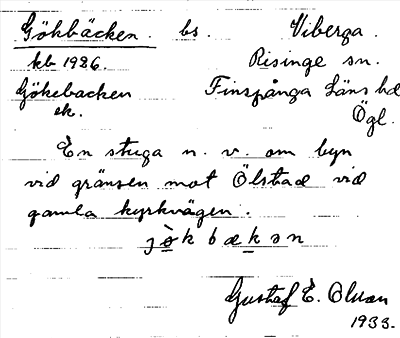 Gökbäcken. bs. Viberga.
kb 1926. Risinge sn.
Gökebacken Finspånga Läns hd
ek. Ögl.
En stuga n. v. om byn
vid gränsen mot Ölstad vid
gamla kyrkvägen.
jökbækən
Gustaf E. Olsson
1933.